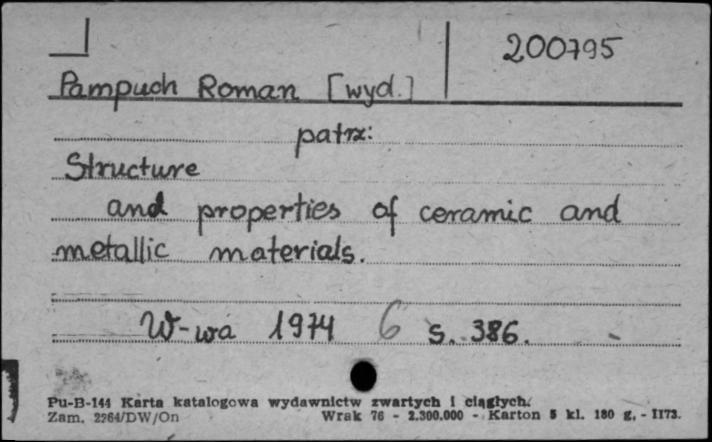 200795
Pampuch Roman [wyd.]
patrz:
Structure
and properties of ceramic and
metallic materials.
W-wa 1974 6 s. 386.
Pu-B-144 Karta katalogowa wydawnictw zwartych i ciągłych.
Zam. 2264/DW/On Wrak 76 - 2.300.000 - Karton 5 kl. 180 g. - II73.